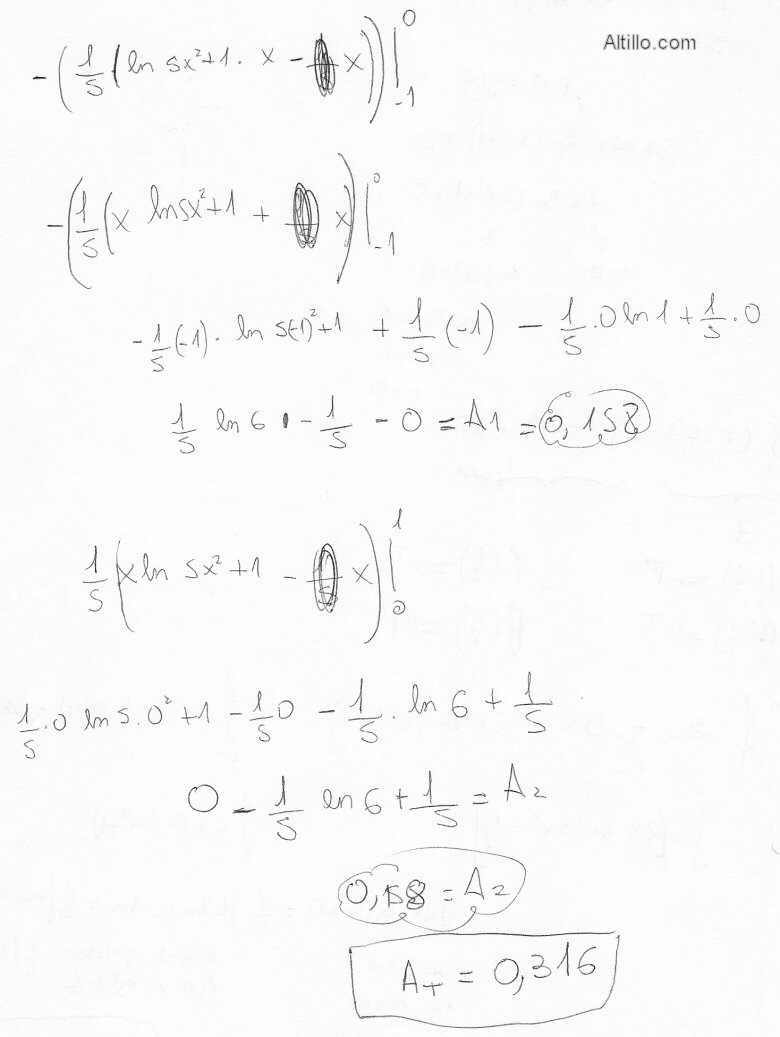 Altillo.com
- (1/5 (ln 5x²+1 . x - x)) |⁰₋₁
- (1/5 (x ln 5x²+1 + x)) |⁰₋₁
- 1/5 (-1) . ln 5(-1)²+1 + 1/5 (-1) - 1/5 . 0 ln 1 + 1/5 . 0
1/5 ln 6 - 1/5 - 0 = A1 = 0,158
1/5 (x ln 5x²+1 - x) |¹₀
1/5 . 0 ln 5.0²+1 - 1/5 0 - 1/5 . ln 6 + 1/5
0 - 1/5 ln 6 + 1/5 = A2
0,158 = A2
A_T = 0,316